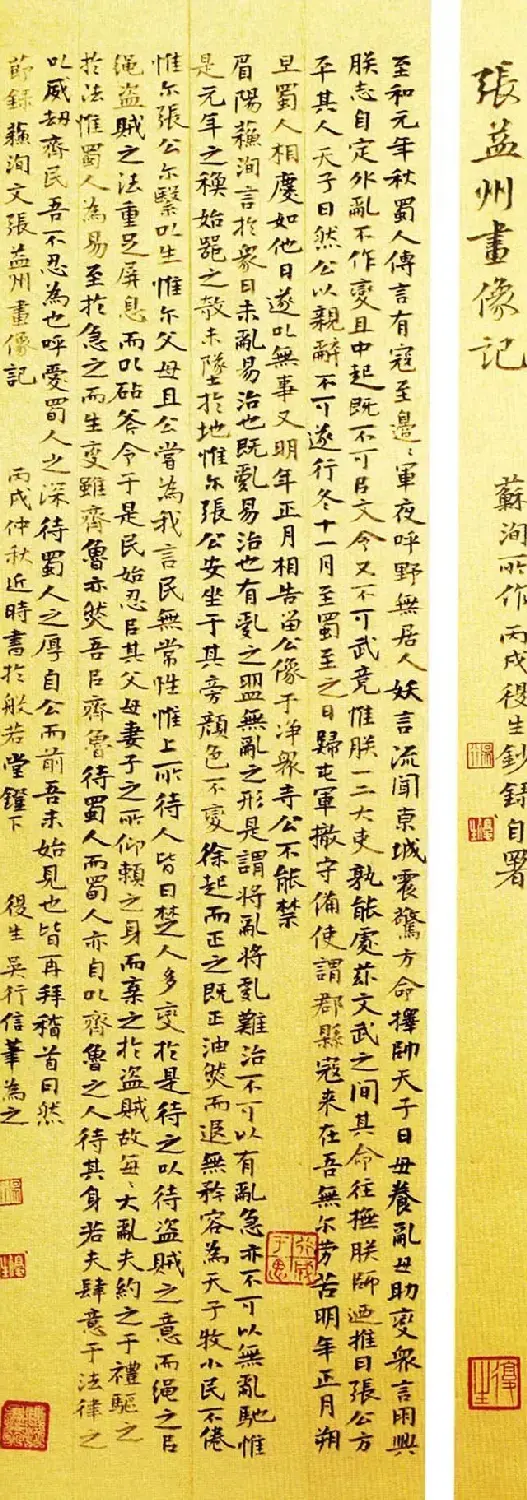 張益州畫像記
蘇洵所作 丙戌後生鈔錄自署
至和元年秋蜀人傳言有寇至邊〻軍夜呼野無居人妖言流聞京城震驚方命擇帥天子曰毋養亂毋助變衆言朋興
朕志自定外亂不作變且中起既不可㠯文令又不可武竞惟朕一二大吏孰能處茲文武之間其命往撫朕師迺推曰張公方
平其人天子曰然公以親辭不可遂行冬十一月至蜀至之日歸屯軍撤守備使謂郡縣寇来在吾無尔劳苦明年正月朔
旦蜀人相慶如他日遂㠯無事又明年正月相告留公像于净衆寺公不能禁
眉陽蘇洵言於衆曰未亂易治也既亂易治也有亂之萌無亂之形是謂將亂將亂難治不可以有亂急亦不可以無亂馳惟
是元年之秋始器之攲未隊土於地惟尔張公安坐于其旁顔色不變徐起而正之既正油然而退無矜容為天子牧小民不倦
惟尔張公尔繄㠯生惟尔父母且公嘗為我言民無常性惟上所待人皆曰蜀人多變於是待之以待盗賊之意而绳之㠯
绳盗賊之法重足屏息而㠯砧斧令于是民始忍㠯其父母妻子之所仰賴之身而棄之於盗賊故每〻大亂夫約之于禮驅之
於法惟蜀人為易至於急之而生變雖齊魯亦然吾㠯齊魯待蜀人而蜀人亦自㠯齊魯之人待其身若夫肆意于法律之
㠯威劫齊民吾不忍為也呼愛蜀人之深待蜀人之厚自公而前吾未始見也皆再拜稽首曰然
節錄蘇洵文張益州畫像記 丙戌仲秋近時書於般若堂鐙下 後生吴行信筆為之